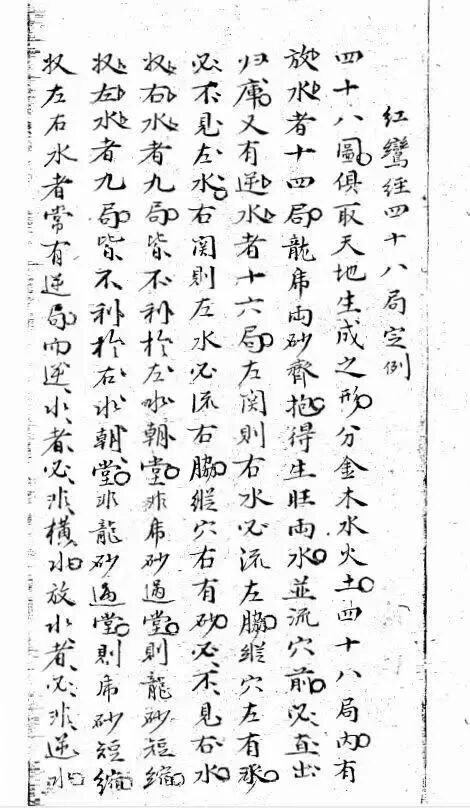 红鸾经四十八局定例
四十八圖俱取天地生成之形分金木水火土四十八局内有
放水者十四局龍虎両砂齊抱得生旺両水並流穴前必直出
归庫又有逆水者十六局左関則右水必流左脇縦穴左有砂
必不見左水右関則左水必流右脇縦穴右有砂必不見右水
収右水者九局皆不利於左水朝堂非虎砂過堂則龍砂短縮
収左水者九局皆不利於右水朝堂非龍砂過堂則虎砂短縮
収左右水者常有逆局而逆水者必非横水放水者必非逆水